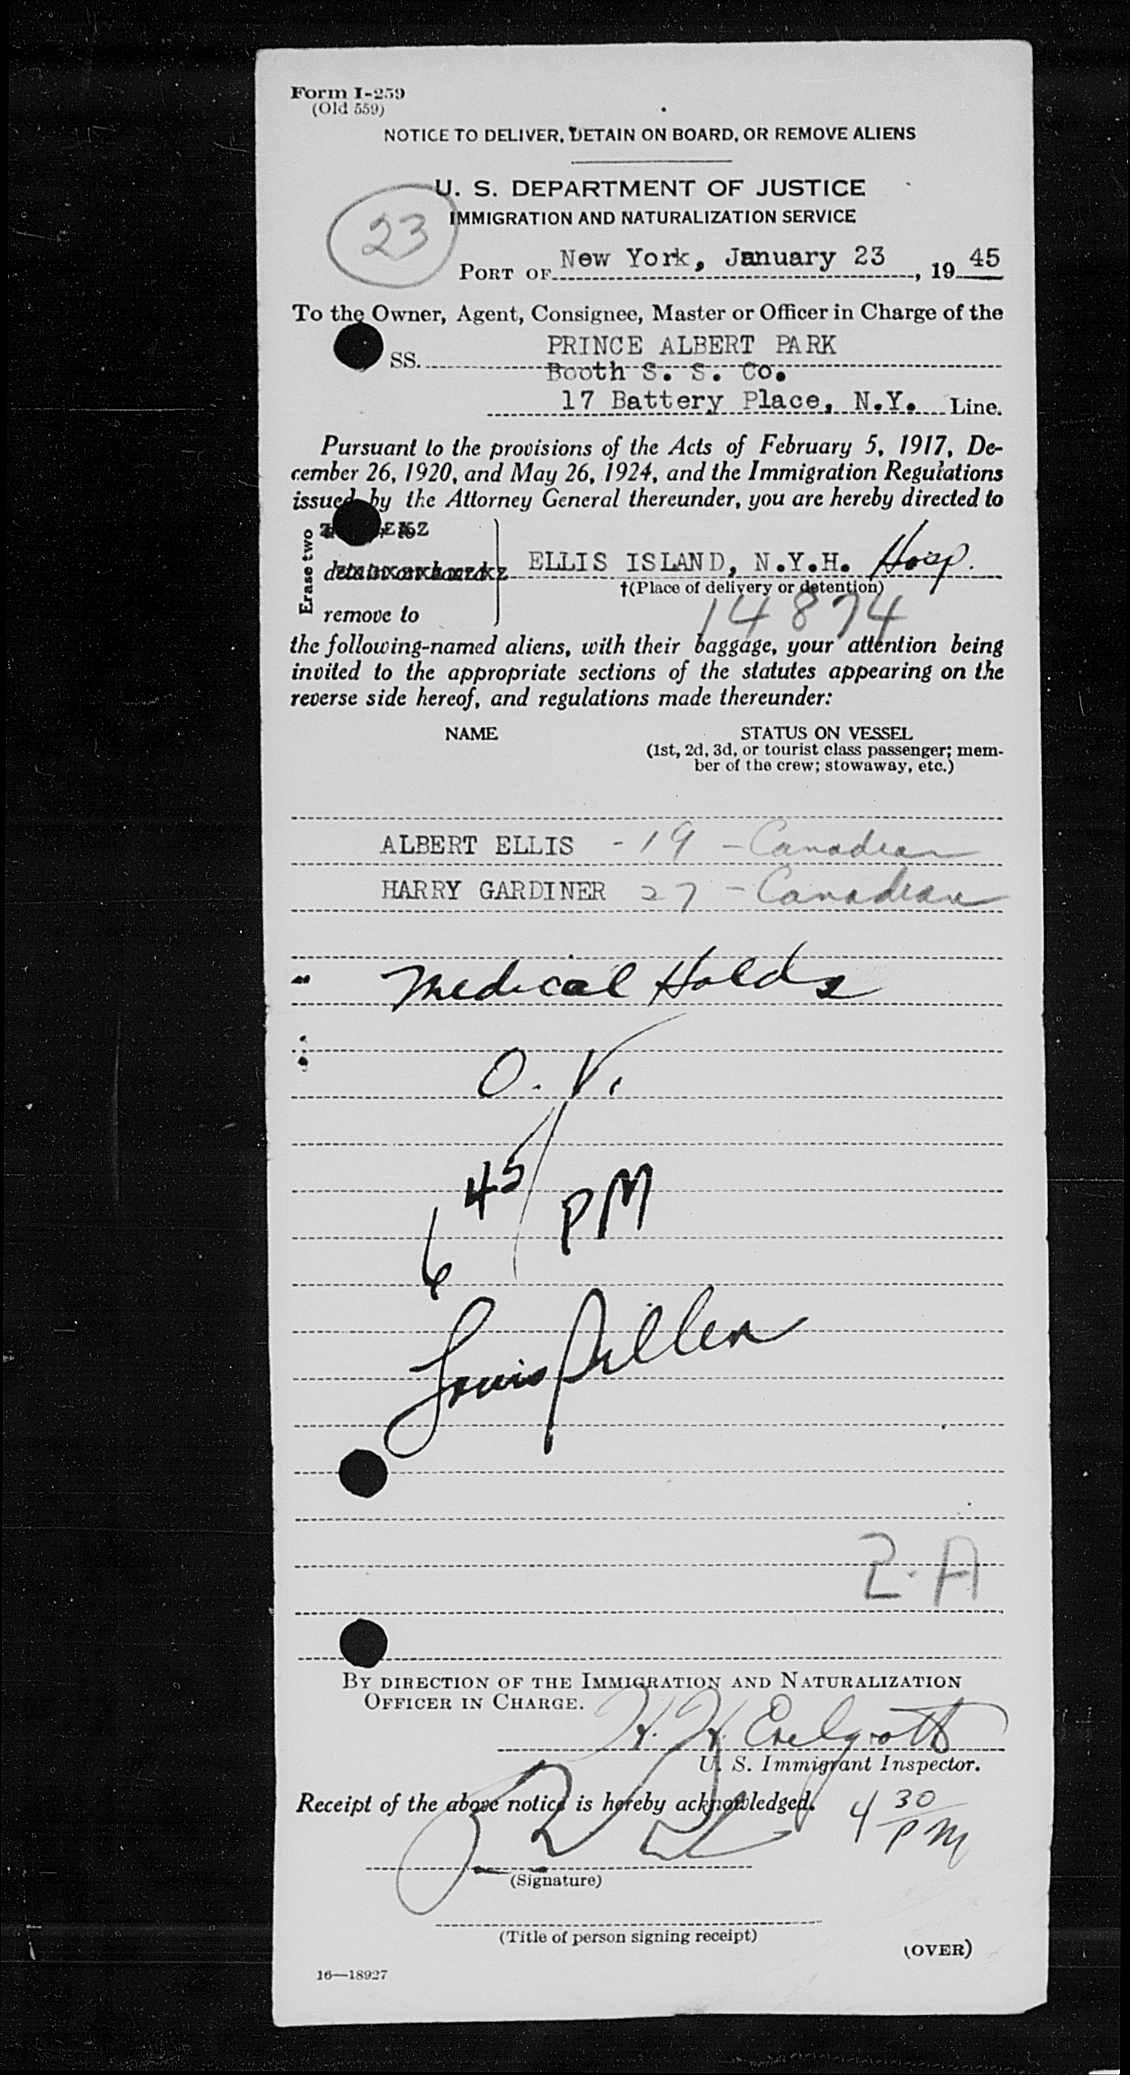 Form I-259
(Old 559)
NOTICE TO DELIVER, DETAIN ON BOARD, OR REMOVE ALIENS
U. S. DEPARTMENT OF JUSTICE
IMMIGRATION AND NATURALIZATION SERVICE
23
PORT OF New York, January 23, 1945
To the Owner, Agent, Consignee, Master or Officer in Charge of the
SS. PRINCE ALBERT PARK
Booth S. S. Co.
17 Battery Place, N.Y. Line.
Pursuant to the provisions of the Acts of February 5, 1917, De-
cember 26, 1920, and May 26, 1924, and the Immigration Regulations
issued by the Attorney General thereunder, you are hereby directed to
Erase two
detain on board
ELLIS ISLAND, N.Y.H. Hosp.
†(Place of delivery or detention)
remove to
14874
the following-named aliens, with their baggage, your attention being
invited to the appropriate sections of the statutes appearing on the
reverse side hereof, and regulations made thereunder:
NAME STATUS ON VESSEL
(1st, 2d, 3d, or tourist class passenger; mem-
ber of the crew; stowaway, etc.)
ALBERT ELLIS - 19 - Canadian
HARRY GARDINER 27 - Canadian
Medical Holds
O. V.
6 45 PM
Louis
2-A
BY DIRECTION OF THE IMMIGRATION AND NATURALIZATION
OFFICER IN CHARGE.
H. H.
U. S. Immigrant Inspector.
Receipt of the above notice is hereby acknowledged.
4 30 PM
(Signature)
(Title of person signing receipt)
(OVER)
16—18927